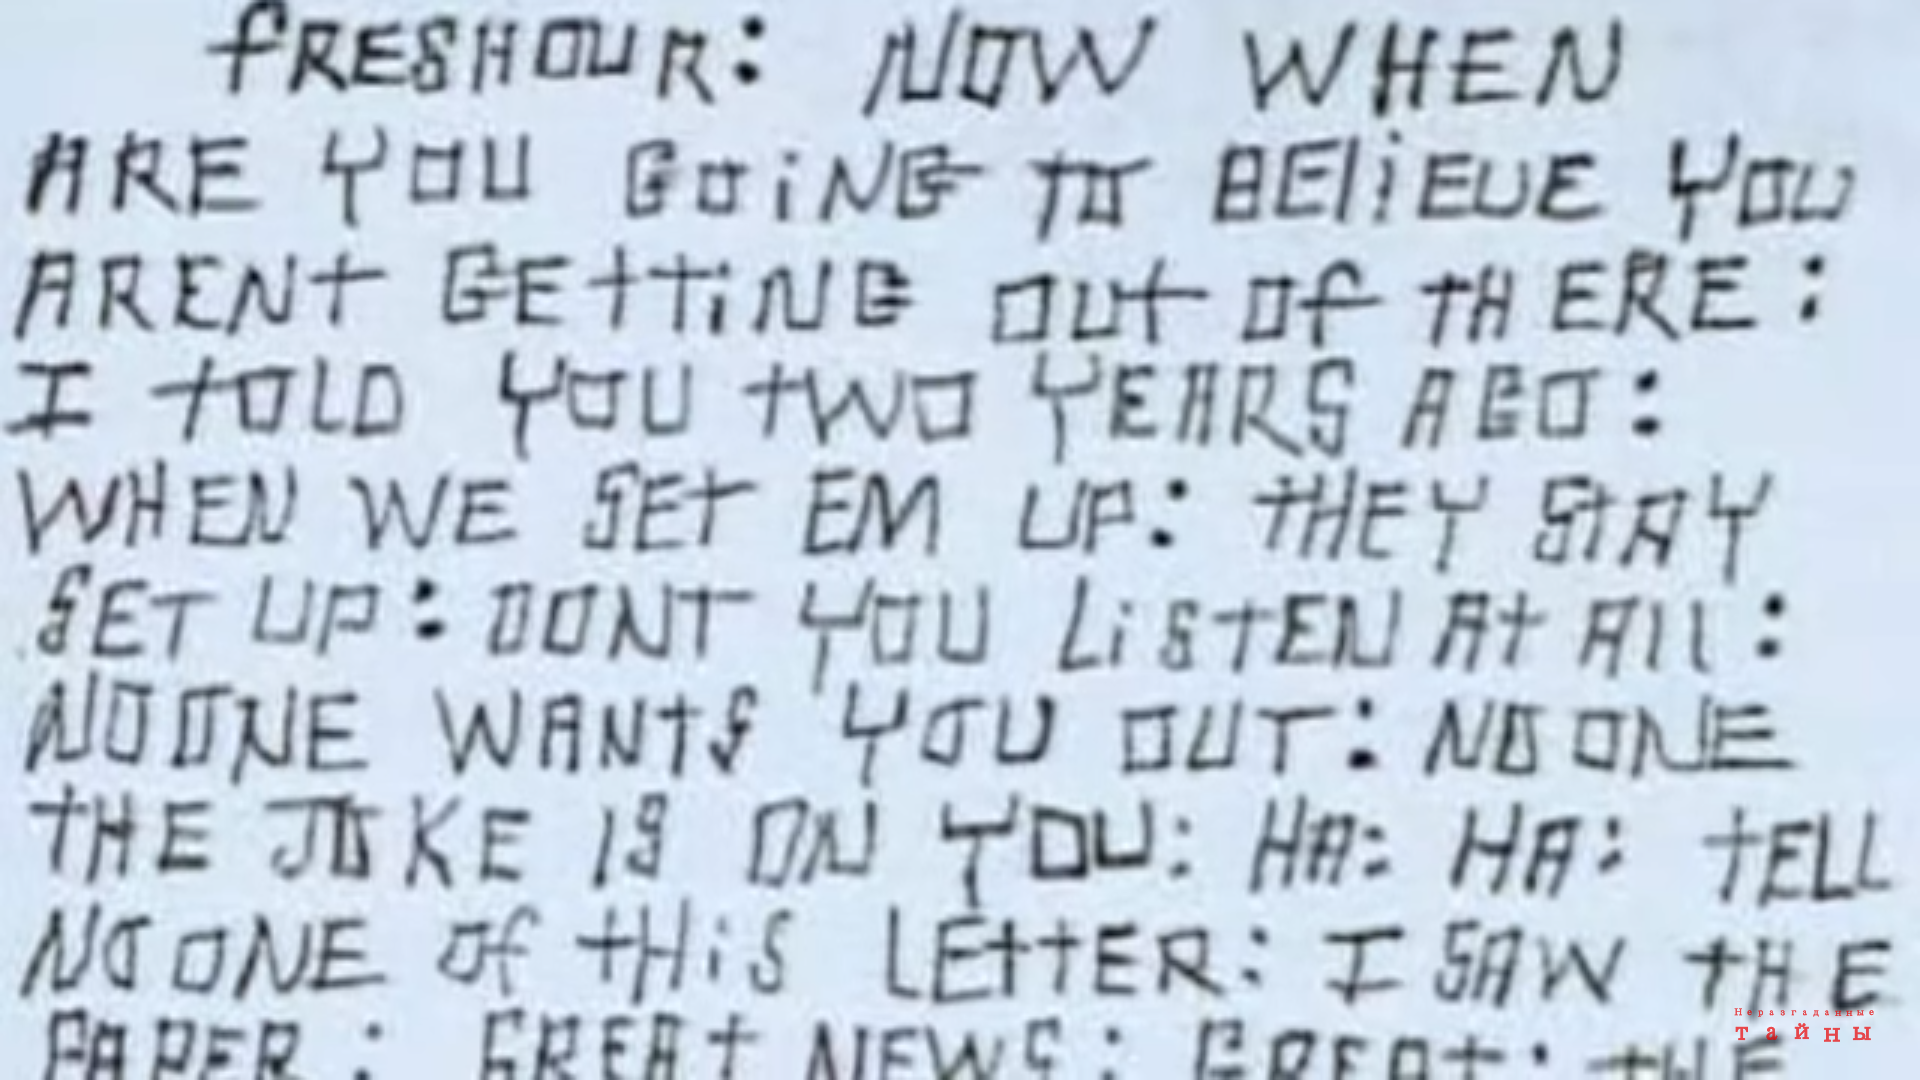 fRESHOUR: NOW WHEN
ARE YOU GOiNG tO BEliEVE YOU
ARENt GEttiNG OUt Of tHERE:
I tOLD YOU tWO YEARS AGO:
WHEN WE SEt EM UP: tHEY StAY
SET UP: DONT YOU LiStEN At All:
NOONE WANtS YOU OUT: NOONE
tHE JOKE IS ON YOU: HA: HA: tELL
NOONE Of tHiS LEttER: I SAW tHE
PAPER: GREAt NEWS: GREAt: tHE
Неразгаданные
тайны